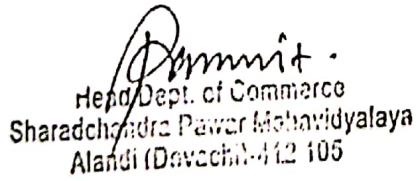 Head Dept. of Commerce
Sharadchandra Pawar Mahavidyalaya
Alandi (Devachi)-412 105